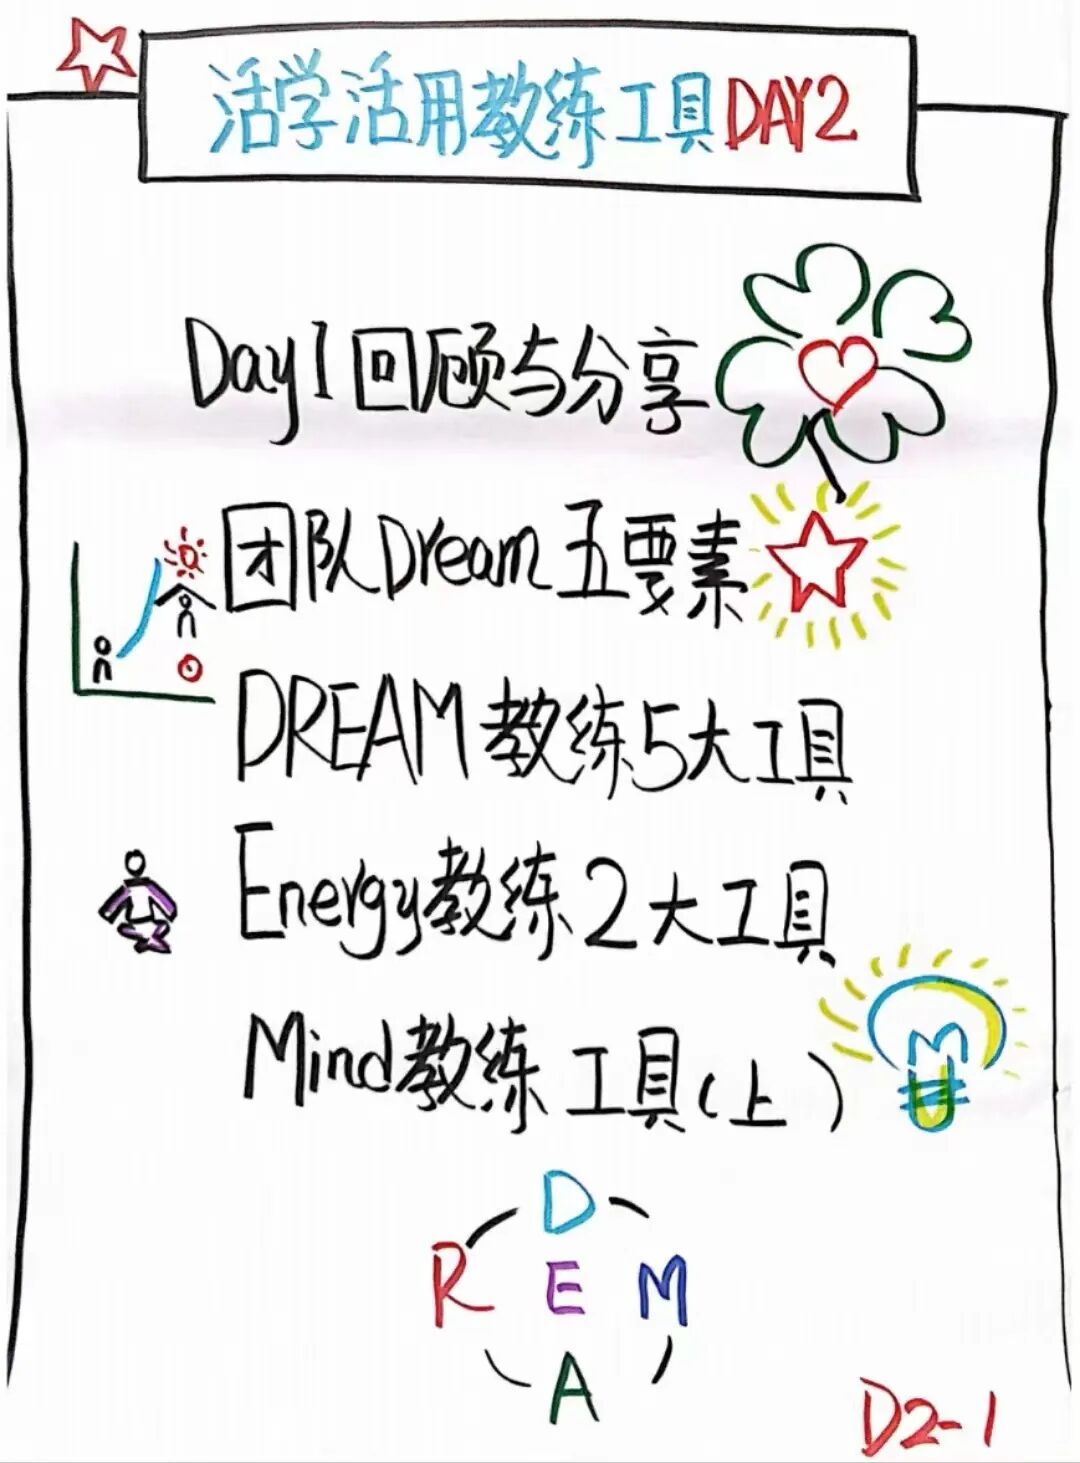 活学活用教练工具DAY2
Day1回顾与分享
团队Dream五要素
DREAM教练5大工具
Energy教练2大工具
Mind教练工具(上)
M
D
R E M
A
D2-1